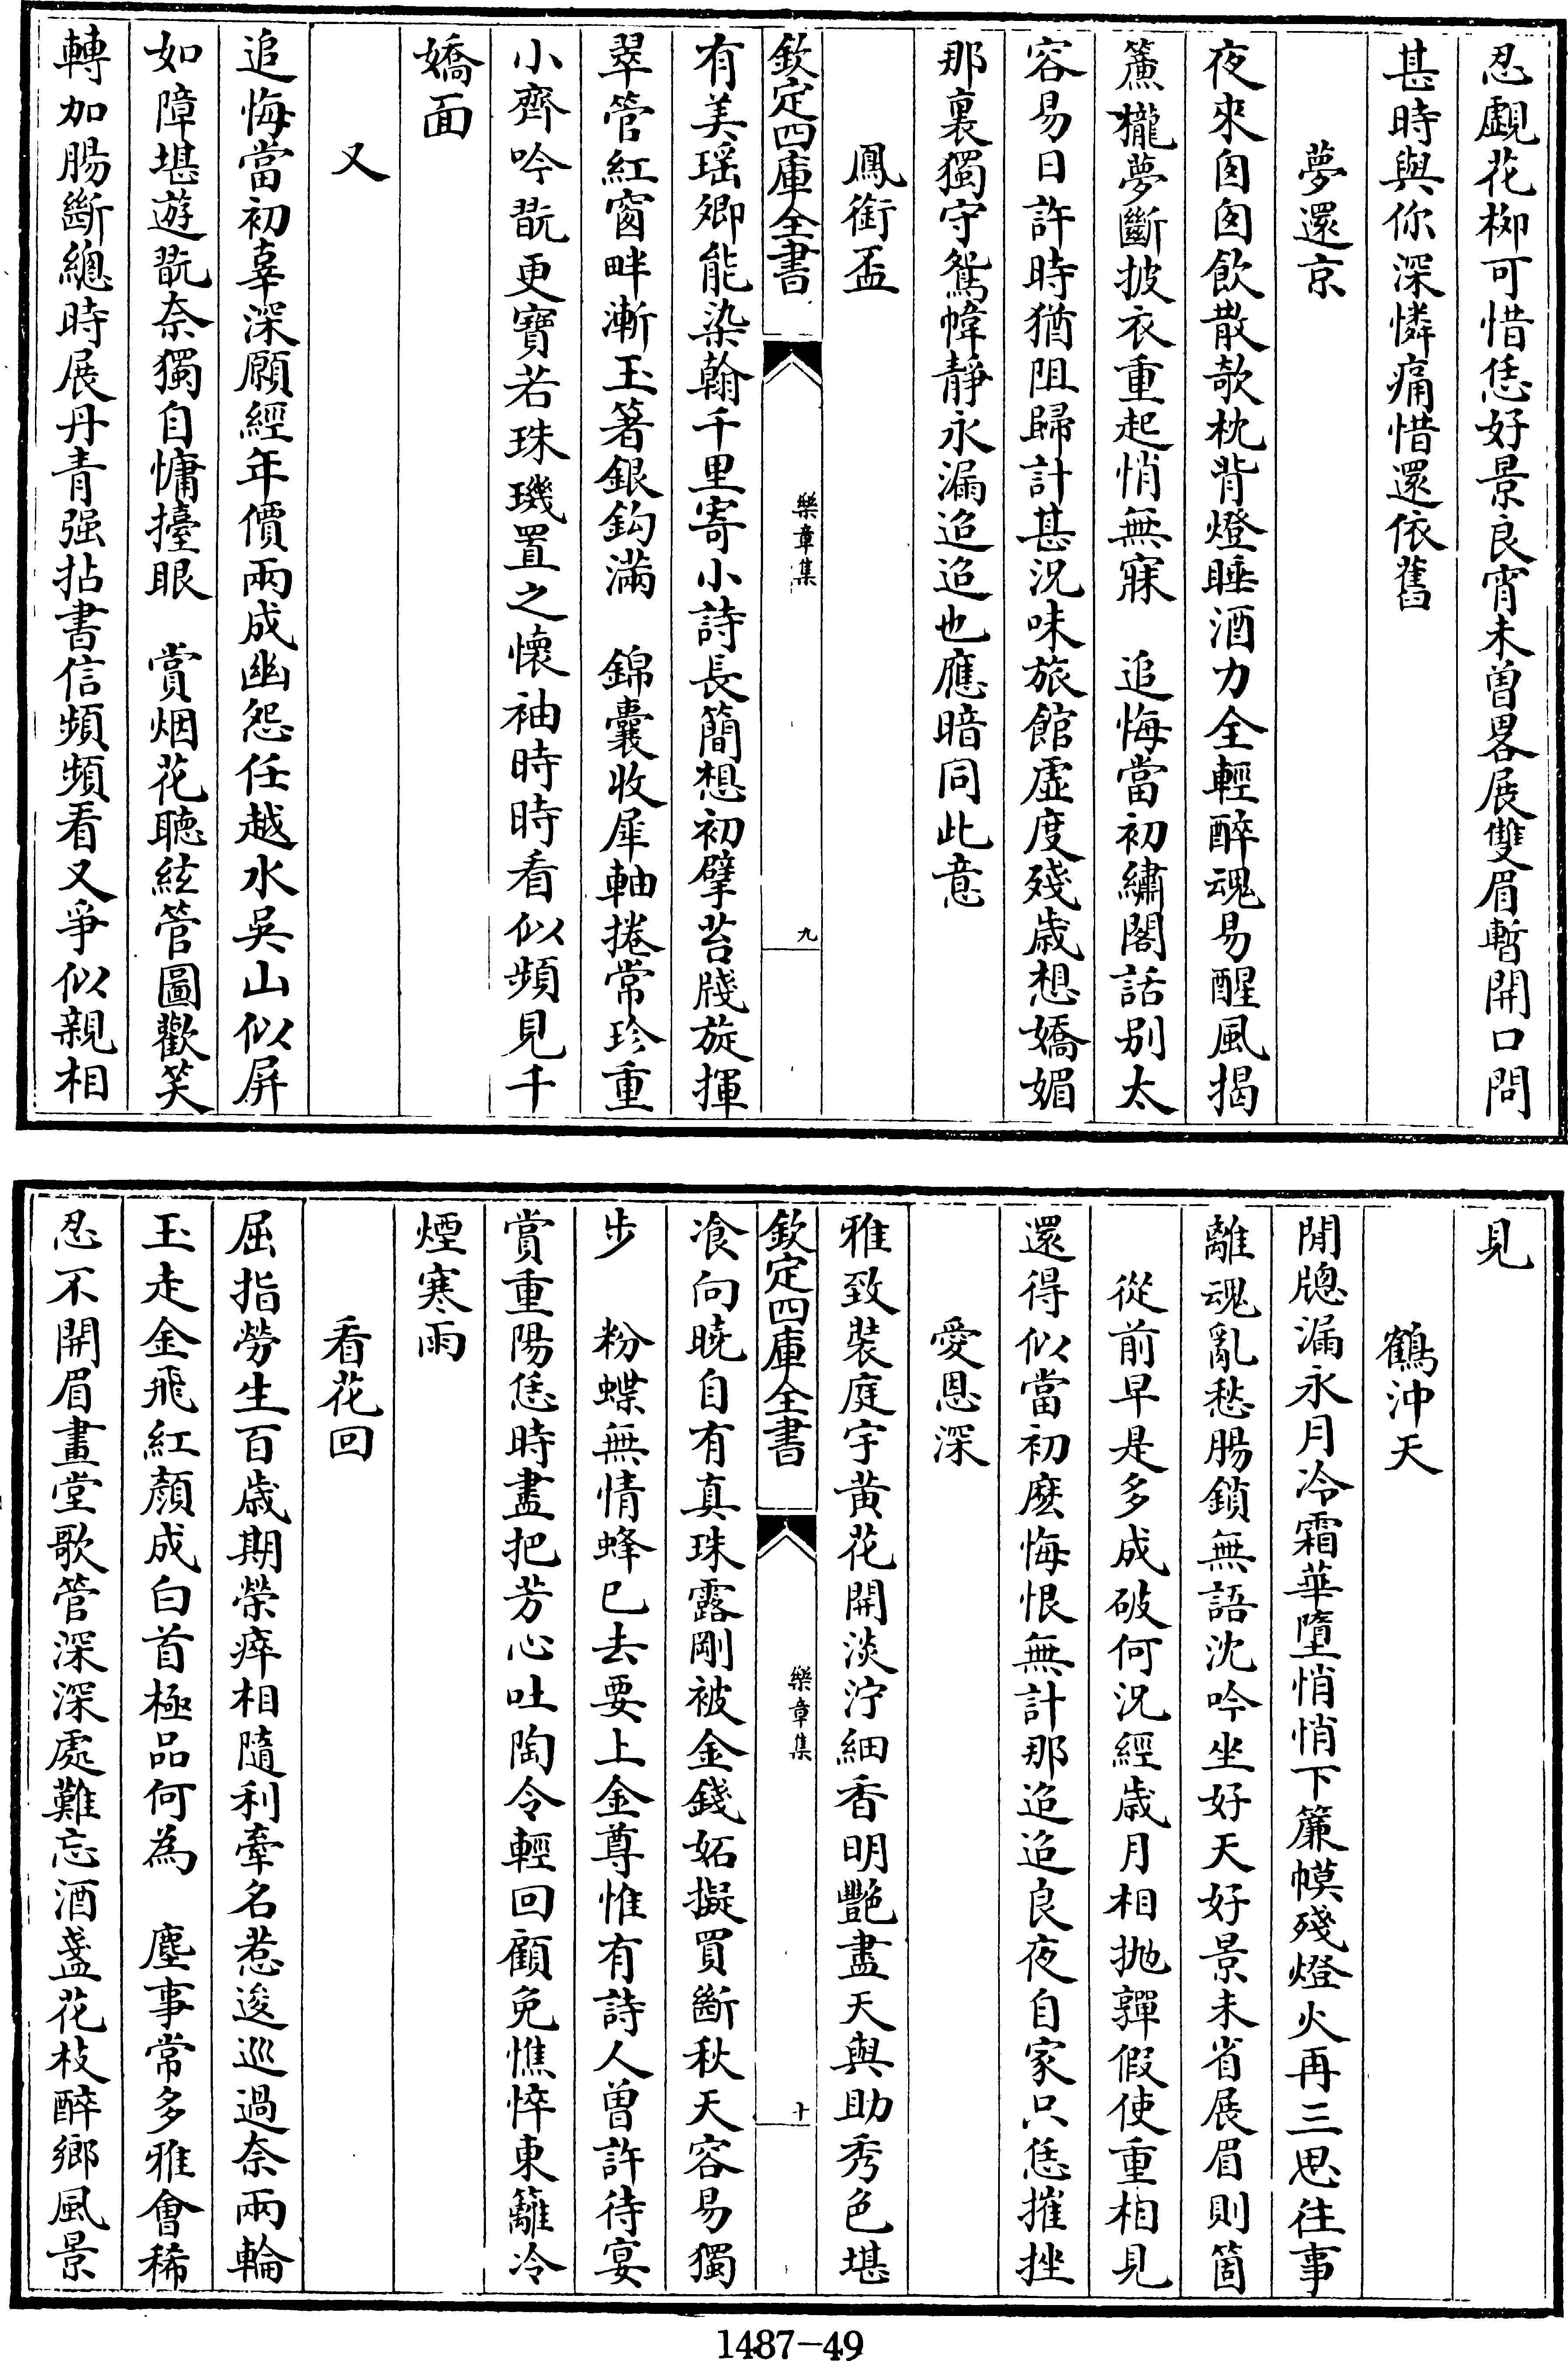 忍覷花柳可惜恁好景良宵未曽畧展雙眉暫開口問
甚時與你深憐痛惜還依舊
夢還京
夜來匆匆飲散欹枕背燈睡酒力全輕醉魂易醒風揭
簾櫳夢斷披衣重起悄無寐　追悔當初繡閣話别太
容易日許時猶阻歸計甚況味旅館虚度殘歲想嬌媚
那裏獨守鴛幃靜永漏迢迢也應暗同此意
鳳銜盃
欽定四庫全書
樂章集
九
有美瑶卿能染翰千里寄小詩長簡想初擘苔牋旋揮
翠管紅窗畔漸玉箸銀鈎滿　錦囊收犀軸捲常珍重
小齊吟翫更寶若珠璣置之懷袖時時看似頻見千
嬌面
又
追悔當初辜深願經年價兩成幽怨任越水吳山似屏
如障堪遊翫奈獨自慵擡眼　賞烟花聽絃管圖歡笑
轉加腸斷總時展丹青强拈書信頻頻看又爭似親相
見
鶴沖天
閒牕漏永月冷霜華墮悄悄下簾幙殘燈火再三思往事
離魂亂愁腸鎖無語沈吟坐好天好景未省展眉則箇
從前早是多成破何況經歲月相抛嚲假使重相見
還得似當初麽悔恨無計那迢迢良夜自家只恁摧挫
愛恩深
雅致裝庭宇黄花開淡泞細香明艷盡天與助秀色堪
欽定四庫全書
樂章集
十
飡向曉自有真珠露剛被金錢妬擬買斷秋天容易獨
步　粉蝶無情蜂已去要上金尊惟有詩人曽許待宴
賞重陽恁時盡把芳心吐陶令輕回顧免憔悴東籬冷
煙寒雨
看花回
屈指勞生百歲期榮瘁相隨利牽名惹逡巡過奈兩輪
玉走金飛紅顏成白首極品何為　塵事常多雅會稀
忍不開眉畫堂歌管深深處難忘酒盞花枝醉鄉風景
1487-49